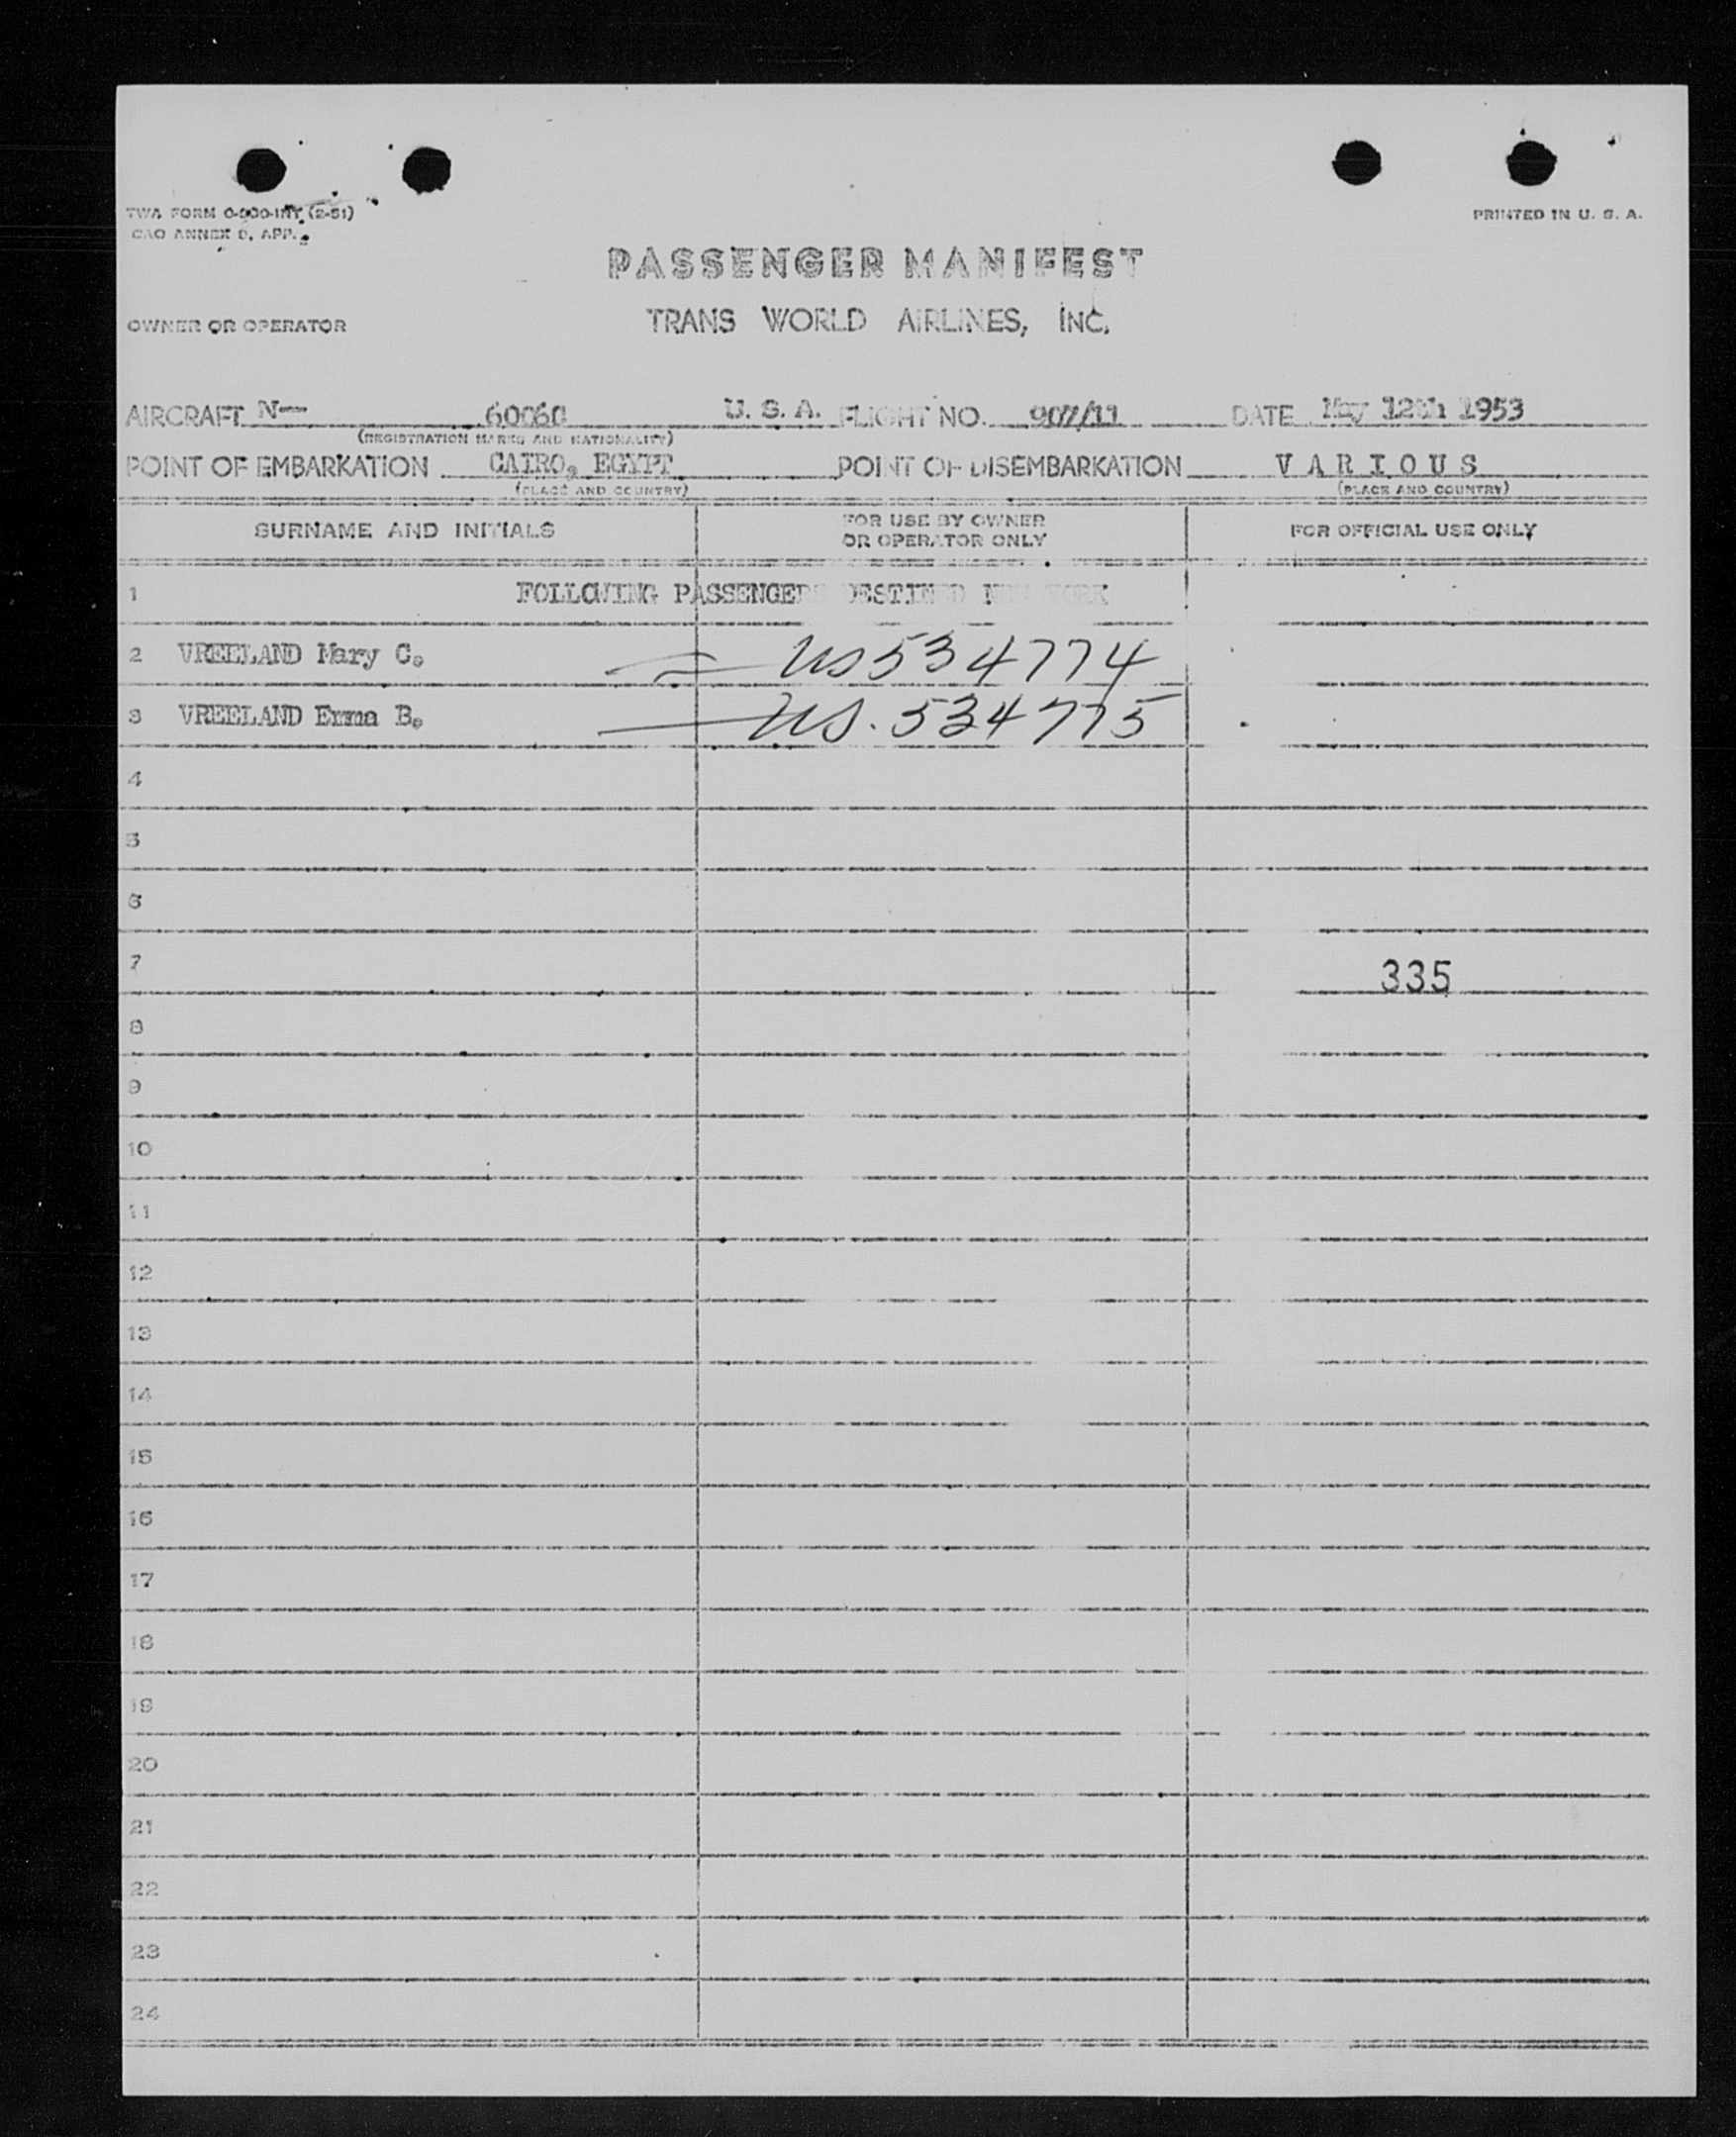 TWA FORM O-900-INT (2-51)
CAO ANNEX 9, APP.
PRINTED IN U. S. A.
PASSENGER MANIFEST
OWNER OR OPERATOR TRANS WORLD AIRLINES, INC.
AIRCRAFT N— 6006C U. S. A. FLIGHT NO. 907/11 DATE May 12th 1953
(REGISTRATION MARKS AND NATIONALITY)
POINT OF EMBARKATION CAIRO, EGYPT POINT OF DISEMBARKATION VARIOUS
(PLACE AND COUNTRY) (PLACE AND COUNTRY)
SURNAME AND INITIALS FOR USE BY OWNER OR OPERATOR ONLY FOR OFFICIAL USE ONLY
1 FOLLOWING PASSENGERS DESTINED NEW YORK
2 VREELAND Mary C. US 534774
3 VREELAND Emma B. US. 534775
4
5
6
7 335
8
9
10
11
12
13
14
15
16
17
18
19
20
21
22
23
24